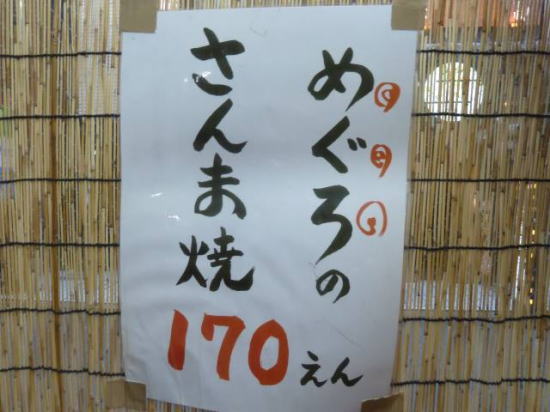 めぐろの
さんま焼
170えん